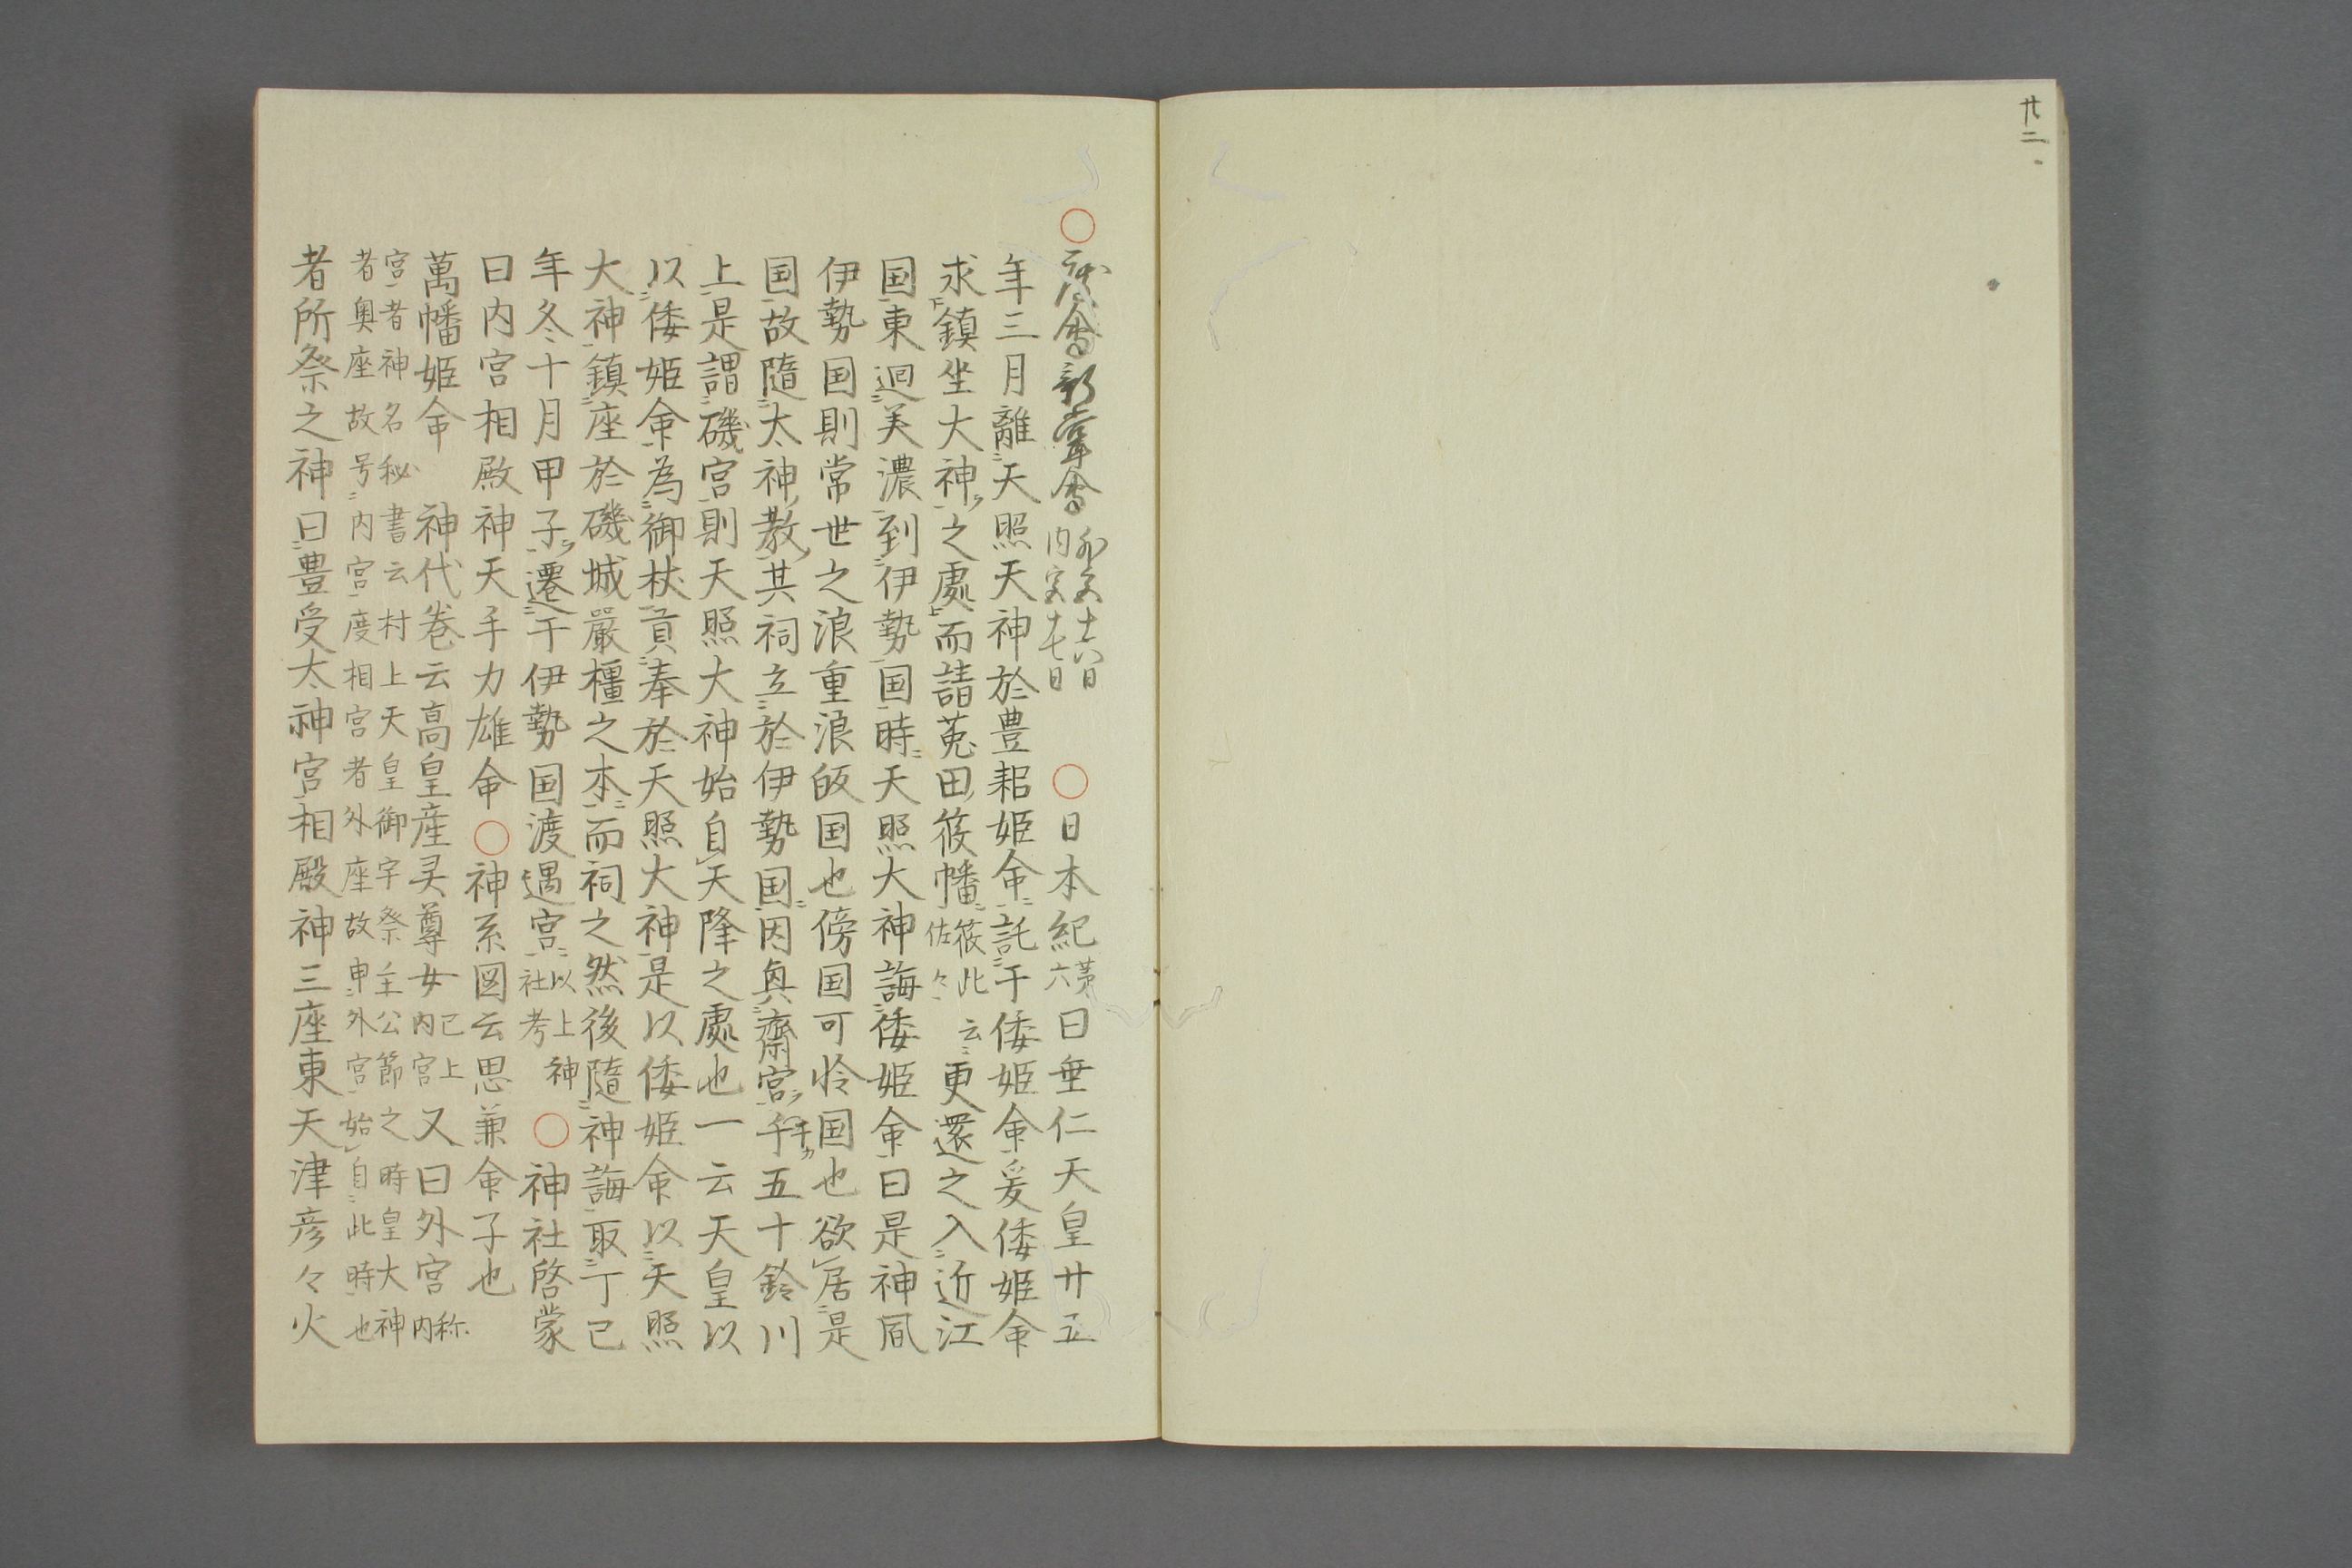 廿二
○度會新嘗會 外宮十六日 内宮十七日 ○日本紀第六曰垂仁天皇廿五
年三月離天照天神於豊耜姫命託于倭姫命爰倭姫命
求鎮坐大神之處而詣菟田筱幡筱此云佐々更還之入近江
国東迴美濃到伊勢国時天照大神誨倭姫命曰是神風
伊勢国則常世之浪重浪皈国也傍国可怜国也欲居是
国故隨太神教其祠立於伊勢国因興齋宮千五十鈴川
上是謂磯宮則天照大神始自天降之處也一云天皇以
以倭姫命為御杖貢奉於天照大神是以倭姫命以天照
大神鎮座於磯城嚴橿之本而祠之然後隨神誨取丁巳
年冬十月甲子遷于伊勢国渡遇宮以上神社考 ○神社啓蒙
曰内宮相殿神天手力雄命○神系図云思兼命子也
萬幡姫命 神代巻云高皇産灵尊女已上内宮又曰外宮称内
宮者神名秘書云村上天皇御宇祭主公節之時皇大神
者奥座故号内宮度相宮者外座故申外宮始自此時也
者所祭之神曰豊受太神宮相殿神三座東天津彦々火